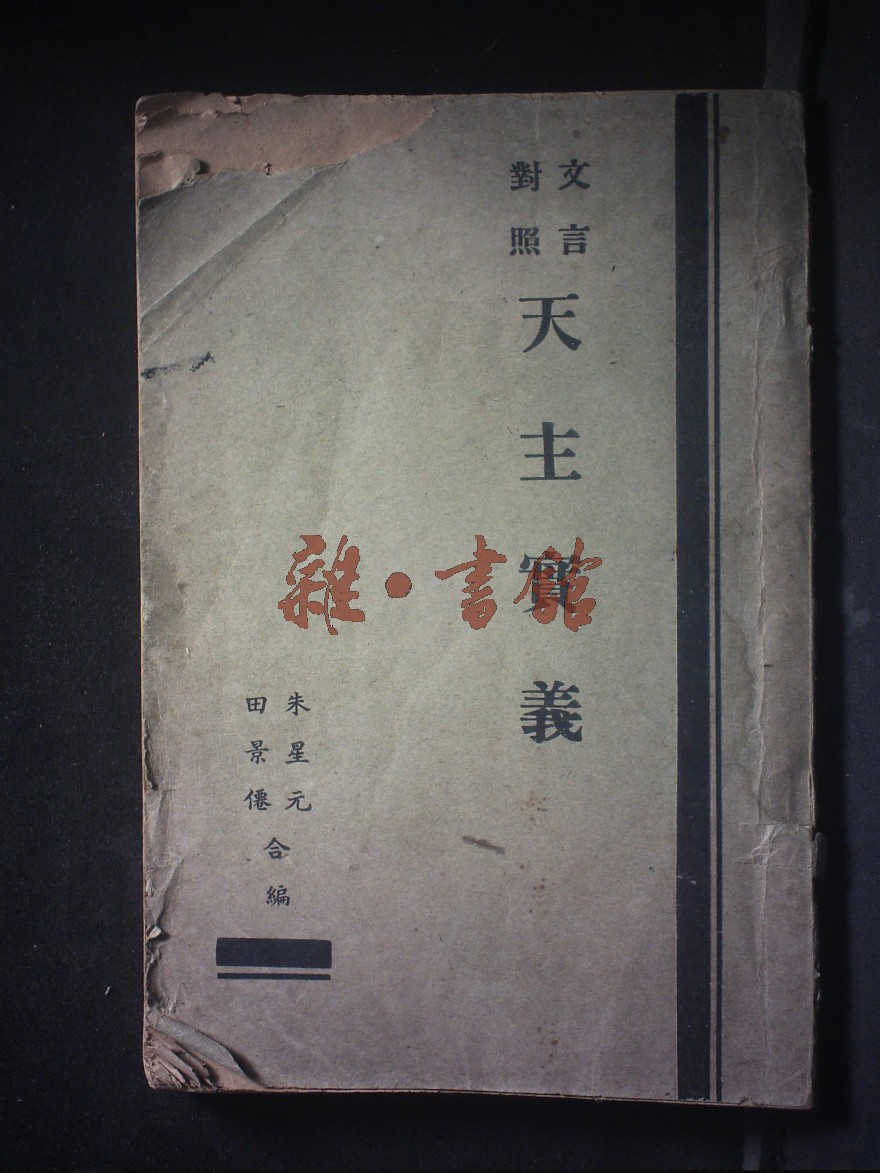 文言
對照
天主實義
朱星元
田景僊
合編
雜•書館